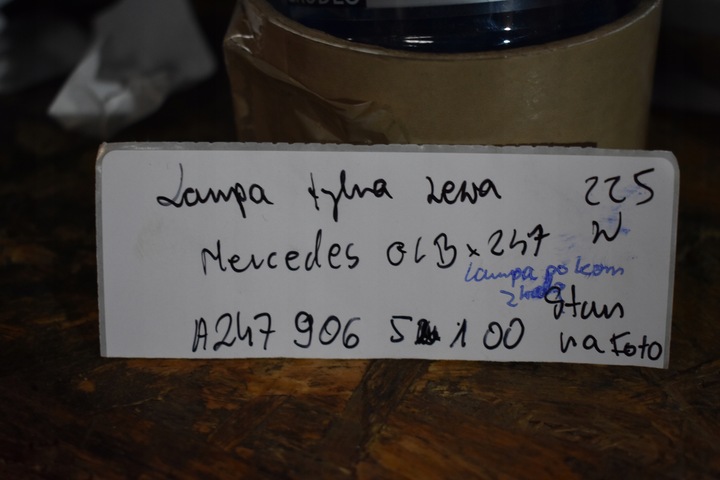 Lampa tylna Lewa 225
Mercedes GLB x247 W
Lampa po lekom
Stan
A247 906 5 1 00 na Foto